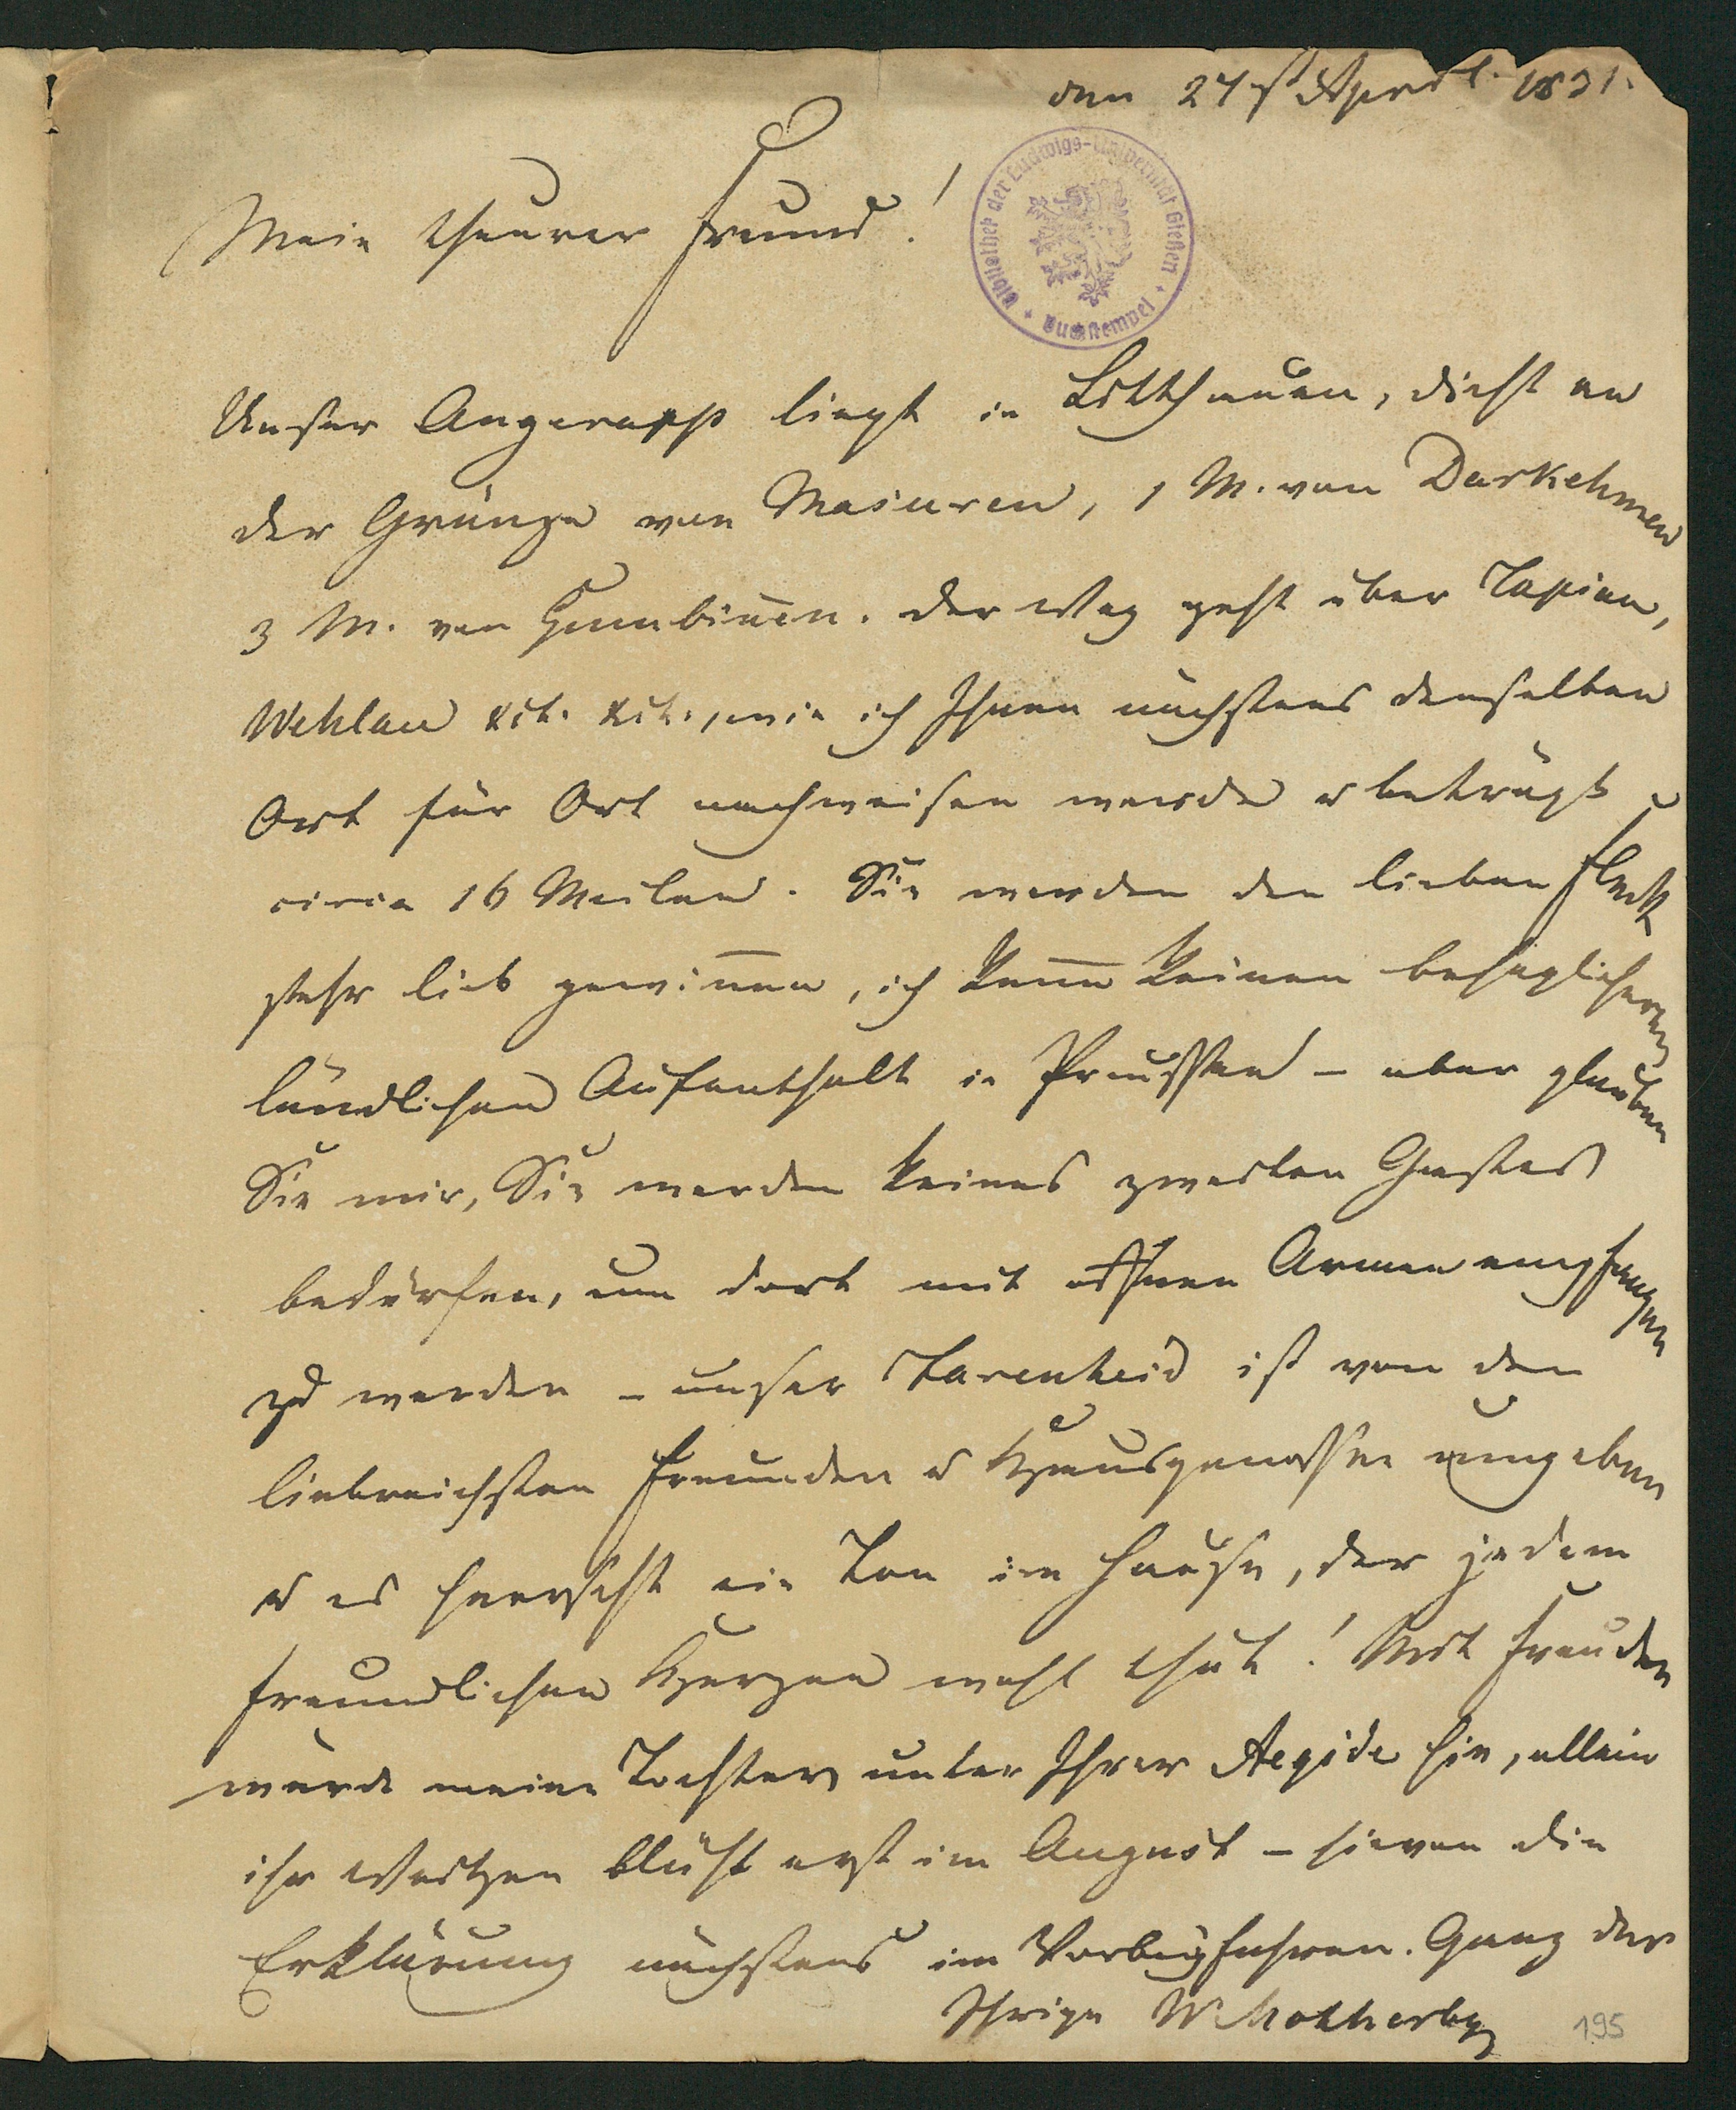 den 24st April. 1831.
Mein theurer Freund!
Bibliothek der Ludwigs-Universität Gießen
Buchstempel
Unser Angerapp liegt in Litthauen, dicht an
der Gränze von Masuren, 1 M. von Darkehmen
3 M. von Gumbinen. Der Weg geht über Tapiau,
Wehlau etc. etc., wie ich Ihnen nächstens denselben
Ort für Ort nachweisen werde u beträgt
circa 16 Meilen. Sie werden den lieben Fleck
sehr lieb gewinen, ich kene keinen behaglichern
ländlichen Aufenthalt in Preussen – aber glauben
Sie mir, Sie werden keines zweiten Gastes
bedürfen, um dort mit offnen Armen empfangen
zu werden – unser Farenheid ist von den
liebreichsten Freunden u Hausgenossen umgeben
u es herrscht ein Ton im Hause, der jedem
freundlichen Herzen wohl thut! Mit Freuden
würde meine Tochter unter Ihrer Aegide hin, allein
ihr Weitzen blüht erst im August – hievon die
Erklärung nächstens im Vorbeyfahren. Ganz der
Ihrige W Motherby
195